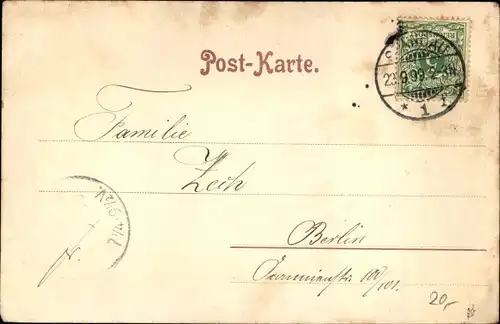 Post-Karte.
23.9.99.
* 1
Familie
Zech
Berlin
Oranienstr. 100/101.
20,-